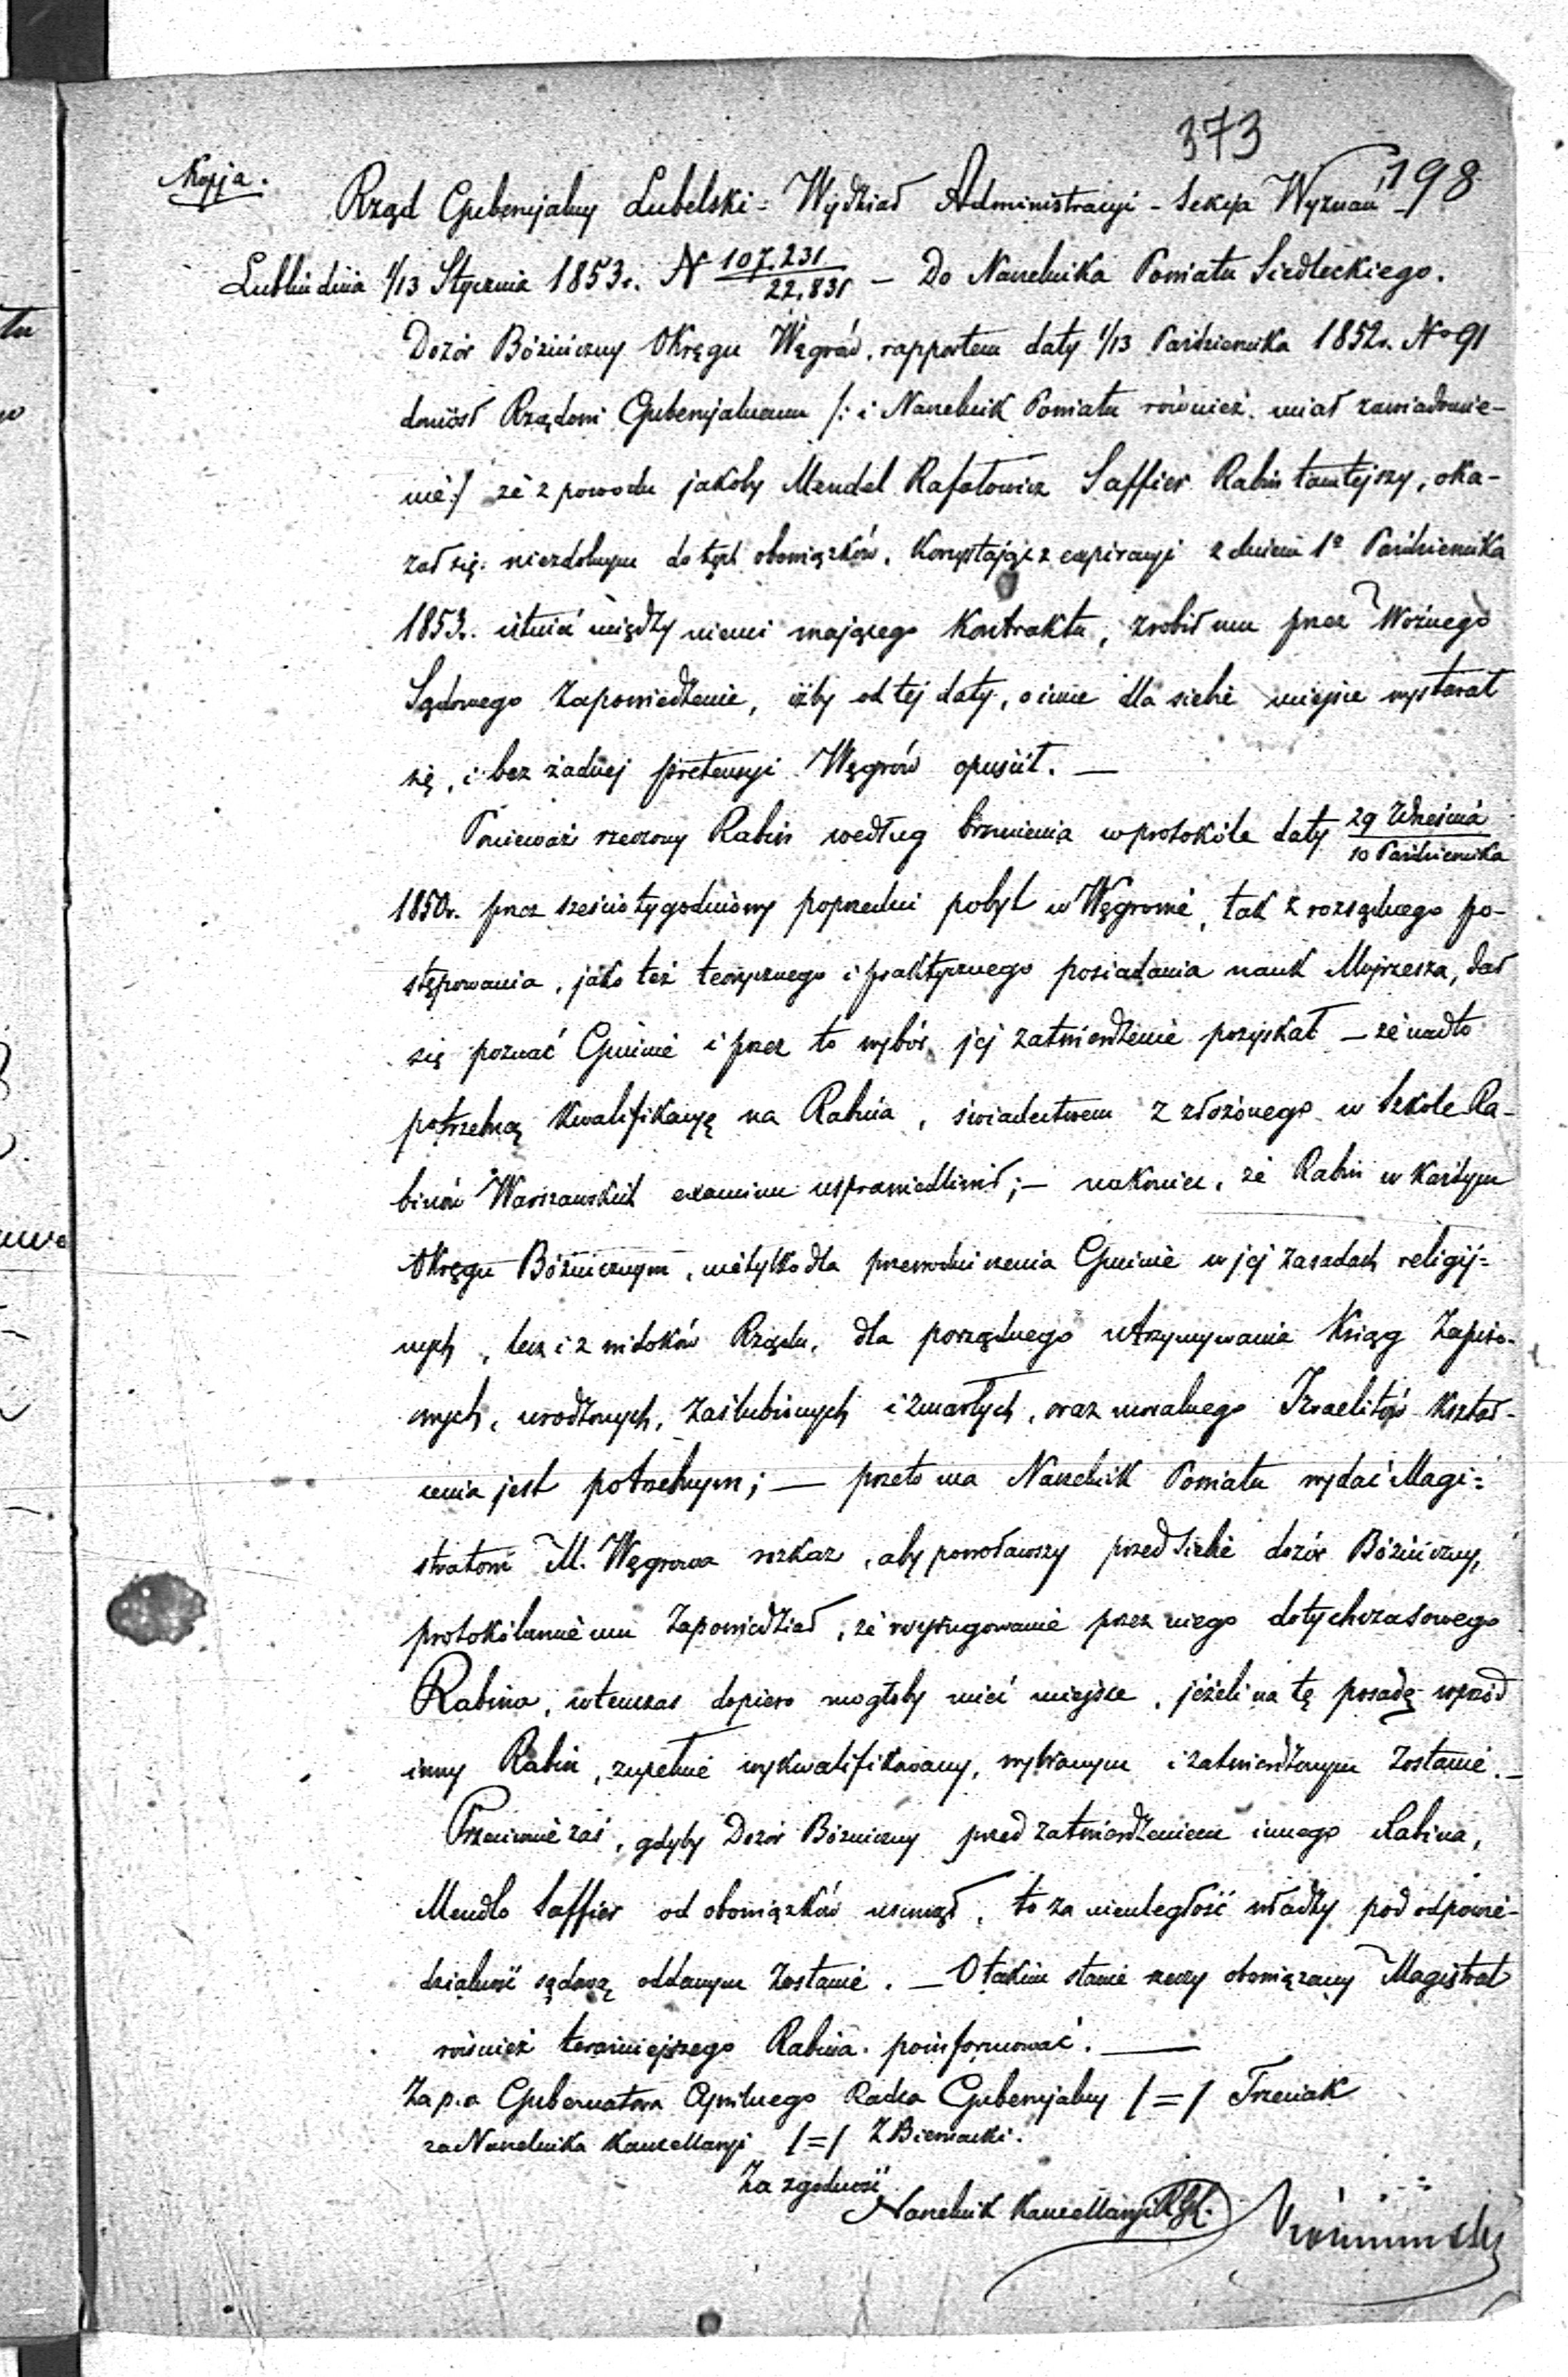 373
Kopja.
198
Rząd Gubernjalny Lubelski = Wydział Administracyi - Sekcya Wyznań -
Lublin dnia 1/13 Stycznia 1853 r. N 107.231/22.831 — Do Naczelnika Powiatu Siedleckiego.
Dozór Bóźniczny Okręgu Węgrów, rapportem daty 1/13 Października 1852 r. No 91
doniósł Rządowi Gubernjalnemu /: i Naczelnik Powiatu również miał zawiadomie-
nie :/ że z powodu jakoby Mendel Rafałowicz Saffier Rabin tamtejszy, oka-
zał się niezdolnym do tych obowiązków, korzystając z expiracyi z dniem 1o Października
1853 r. istnieć między niemi mającego Kontraktu, zrobił mu przez Woźnego
Sądowego zapowiedzenie, iżby od tej daty, o inne dla siebie miejsce wystarał
się, i bez żadnej pretensyi Węgrów opuścił. —
Ponieważ rzeczony Rabin według brzmienia w protokóle daty 29 Września/10 Października
1850 r. przez sześciotygodniowy poprzedni pobyt w Węgrowie, tak z rozsądnego po-
stępowania, jako też teorycznego i praktycznego posiadania nauk Mojżesza, dał
się poznać Gminie i przez to wybór jej zatwierdzenie pozyskał — że nadto
potrzebną kwalifikacyę na Rabina, świadectwem z złożonego w Szkole Ra-
binów Warszawskich examinu usprawiedliwił; — nakoniec, że Rabin w każdym
Okręgu Bóźnicznym, nie tylko dla przewodniczenia Gminie w jej zasadach religij=
nych, lecz i z widoków Rządu, dla porządnego utrzymywania Ksiąg Zapiso-
wych, urodzonych, zaślubionych i zmarłych, oraz moralnego Izraelitów kształ-
cenia jest potrzebnym; — przeto ma Naczelnik Powiatu wydać Magi=
stratowi M. Węgrowa rozkaz, aby powoławszy przed siebie dozór Bóźniczny,
protokólarnie mu zapowiedział, że wyrugowanie przez niego dotychczasowego
Rabina, wtenczas dopiero mogłoby mieć miejsce, jeżeli na tę posadę wprzód
inny Rabin, zupełnie wykwalifikowany, wybranym i zatwierdzonym zostanie. —
Przeciwnie zaś, gdyby Dozór Bóźniczny przed zatwierdzeniem innego Rabina,
Mendla Saffier od obowiązków usunął, to za nieuległość władzy pod odpowie-
dzialność sądową oddanym zostanie. — O takim stanie rzeczy obowiązany Magistrat
również teraźniejszego Rabina poinformować. —
Za p.o Gubernatora Cywilnego Radca Gubernjalny /=/ Trzeciak
za Naczelnika Kancellaryi /=/ Z Biernacki.
Za zgodność
Naczelnik Kancellaryi